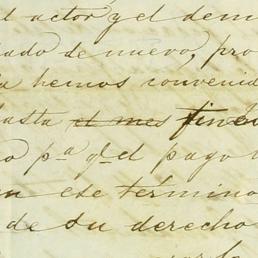 l actor y el dem
ado de nuevo, pro
a hemos convenid
hasta el mes fin
o pª q.l el pago
en ese termino
de su derecho